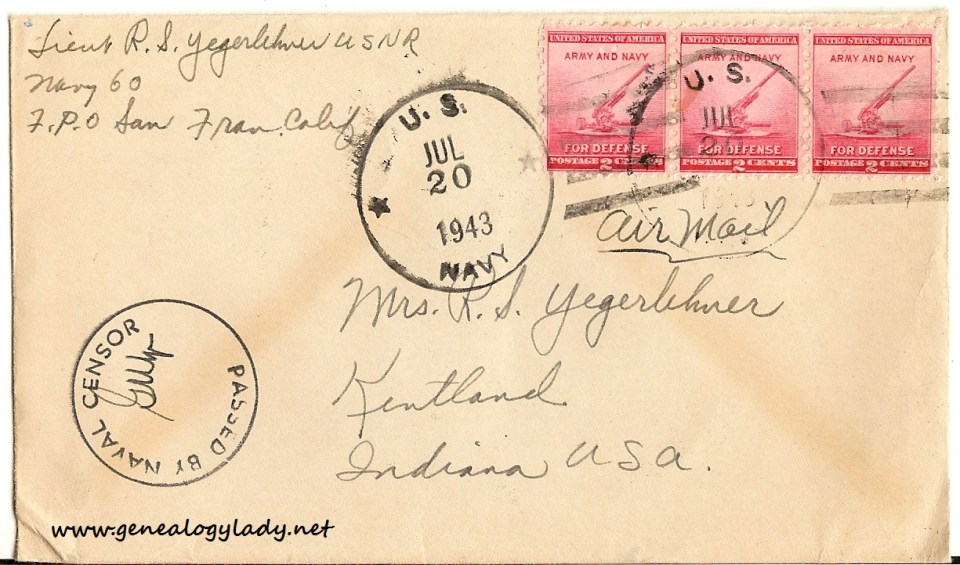 Lieut R. S. Yegerlehner USNR
Navy 60
F.P.O San Fran. Calif
UNITED STATES OF AMERICA UNITED STATES OF AMERICA UNITED STATES OF AMERICA
ARMY AND NAVY ARMY AND NAVY ARMY AND NAVY
FOR DEFENSE FOR DEFENSE FOR DEFENSE
POSTAGE 2 CENTS POSTAGE 2 CENTS POSTAGE 2 CENTS
U. S.
JUL
20
1943
NAVY
U. S.
JUL
1943
Air Mail
Mrs. R. S. Yegerlehner
Kentland
Indiana USA.
PASSED BY NAVAL CENSOR
www.genealogylady.net